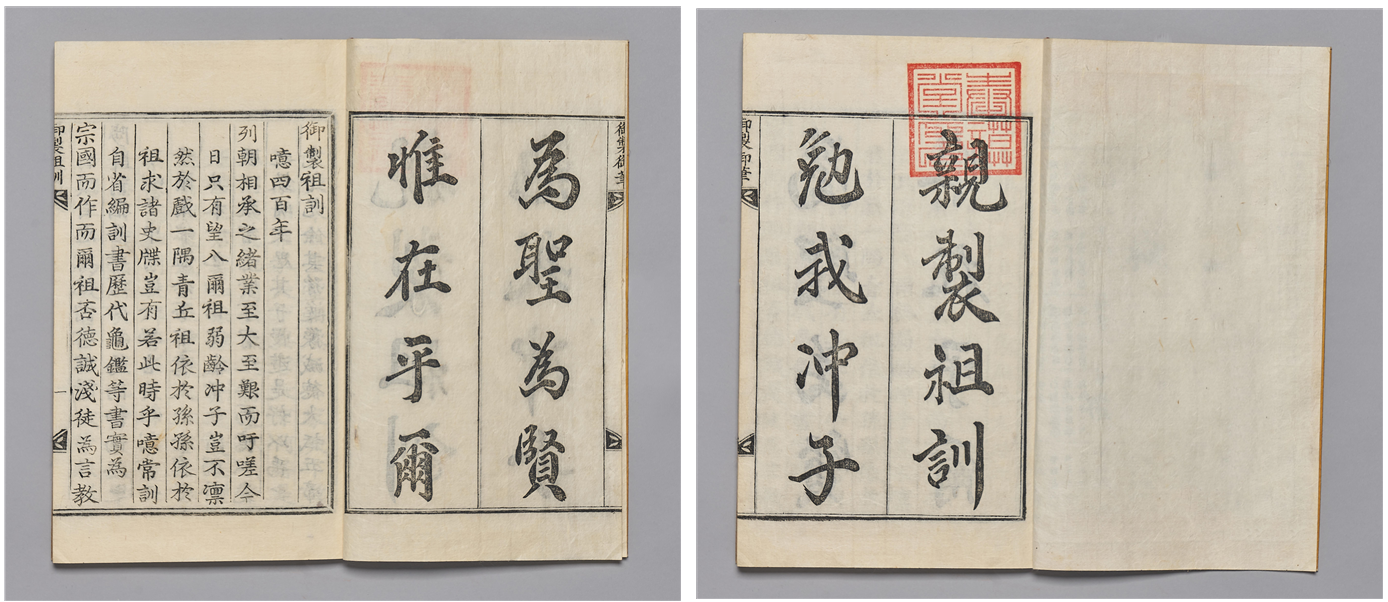 親製祖訓
勉我冲子
御製御筆
御製御筆
為聖為賢
惟在乎爾
御製祖訓
噫四百年
列朝相承之緒業至大至艱而吁嗟今
日只有望八爾祖弱齡冲子豈不凛
然於戲一隅青丘祖依於孫孫依於
祖求諸史牒豈有若此時乎噫常訓
自省編訓書歷代龜鑑等書實為
宗國而作而爾祖否德誠淺徒為言教
御製祖訓
一